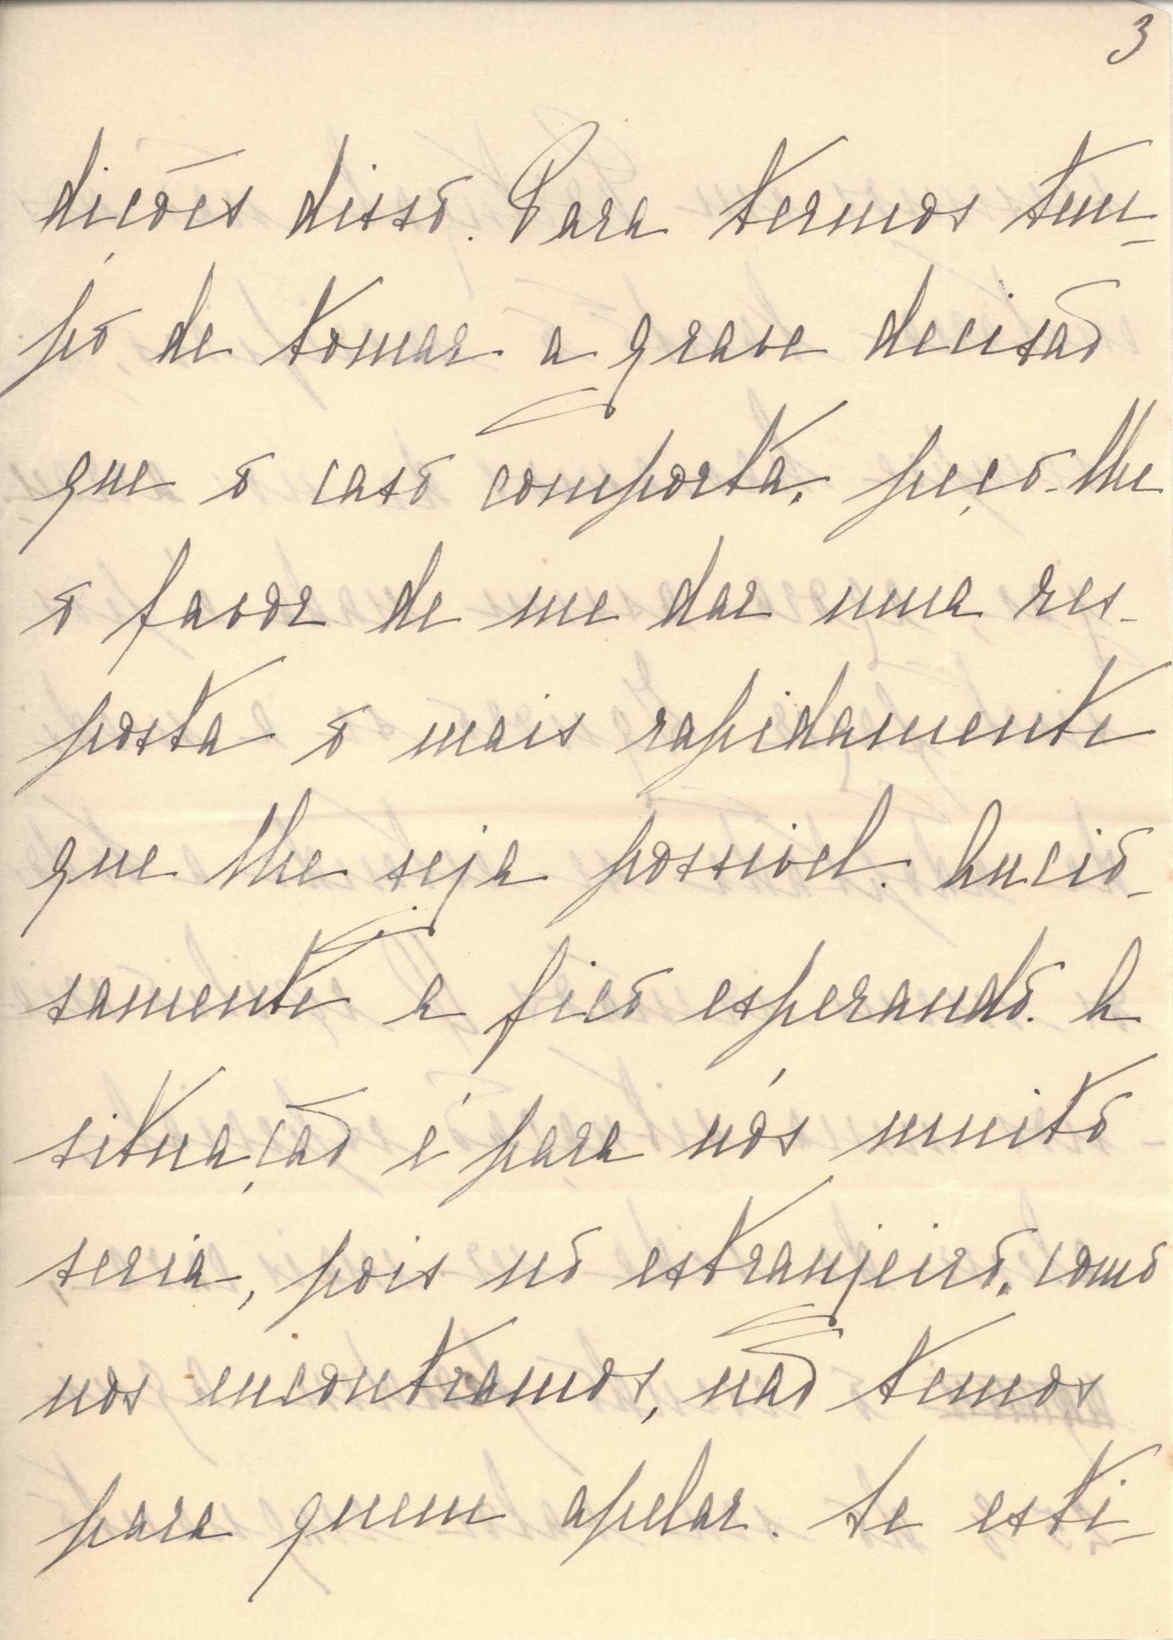 3
dições disso. Para termos tem-
po de tomar a grave decisão
que o caso comporta, peço-lhe
o favor de me dar uma res-
posta o mais rapidamente
que lhe seja possivel. Ancio-
samente a fico esperando. A
situação é para nós muito
seria, pois no estranjeiro, como
nos encontramos, não temos
para quem apelar. Se esti-